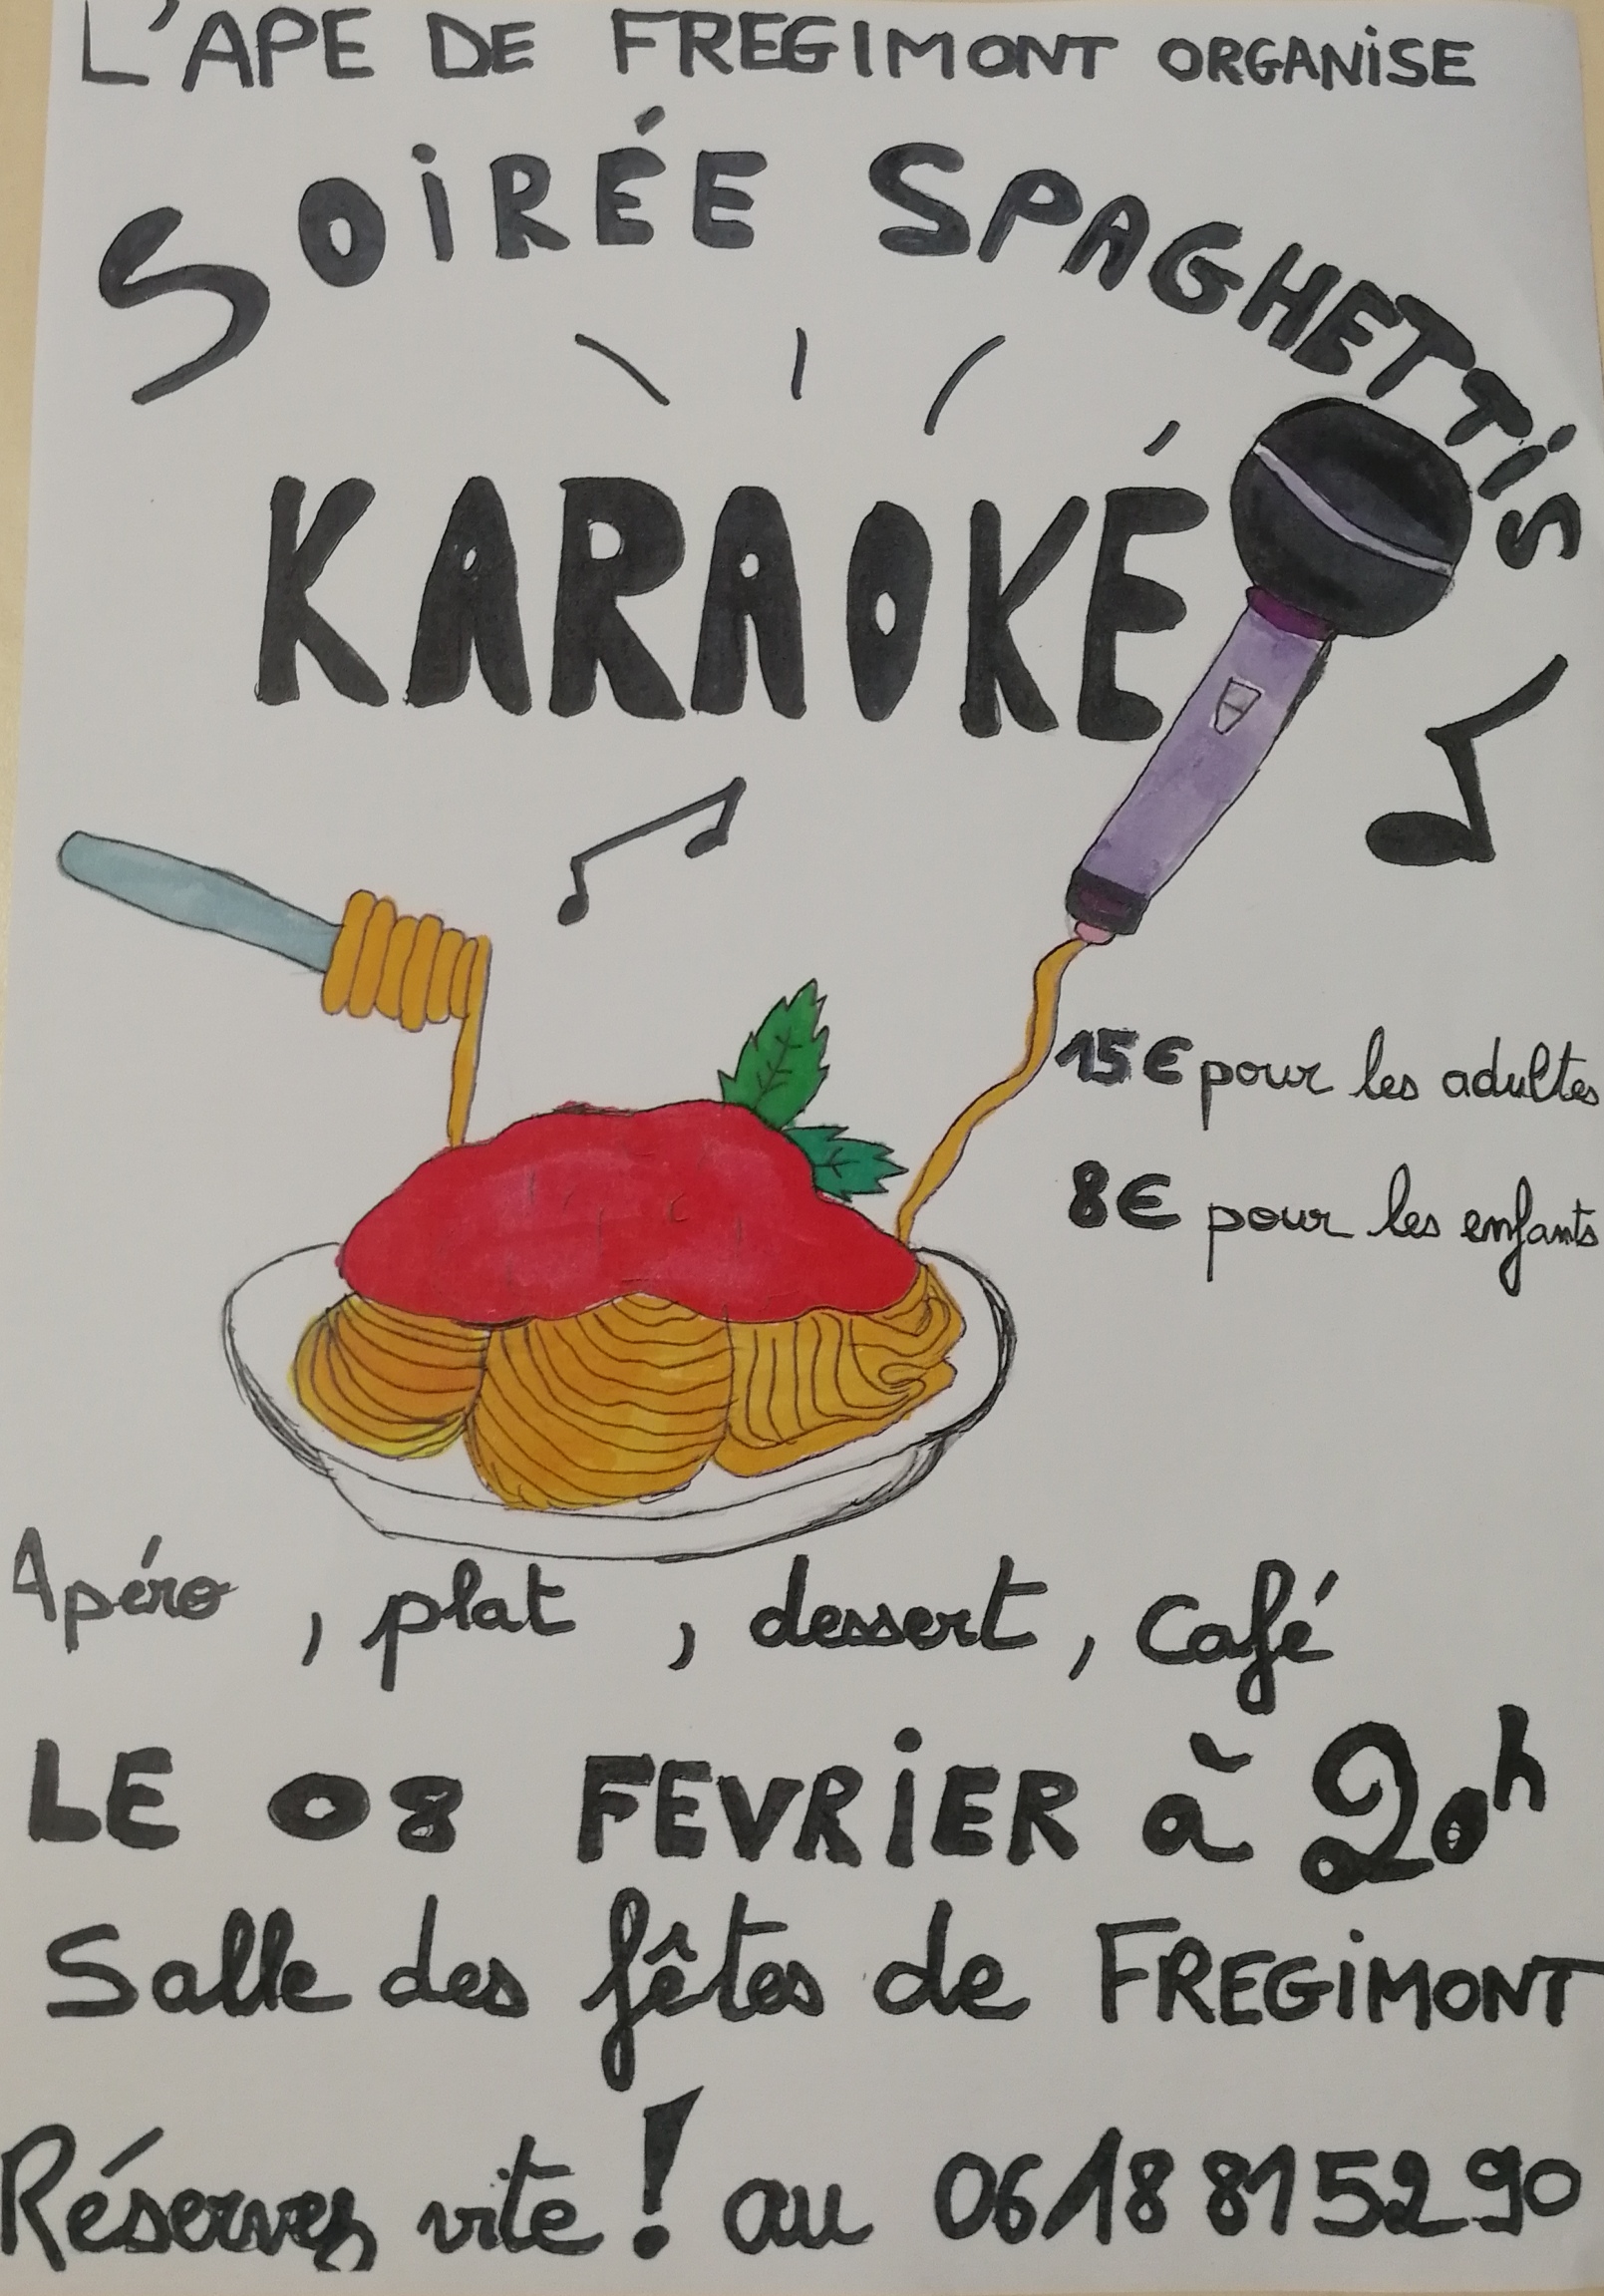 L'APE DE FREGIMONT ORGANISE
SOIRÉE SPAGHETTIS
KARAOKÉ
15€ pour les adultes
8€ pour les enfants
Apéro, plat, dessert, Café
LE 08 FEVRIER à 20h
Salle des fêtes de FREGIMONT
Réservez vite! au 0618815290